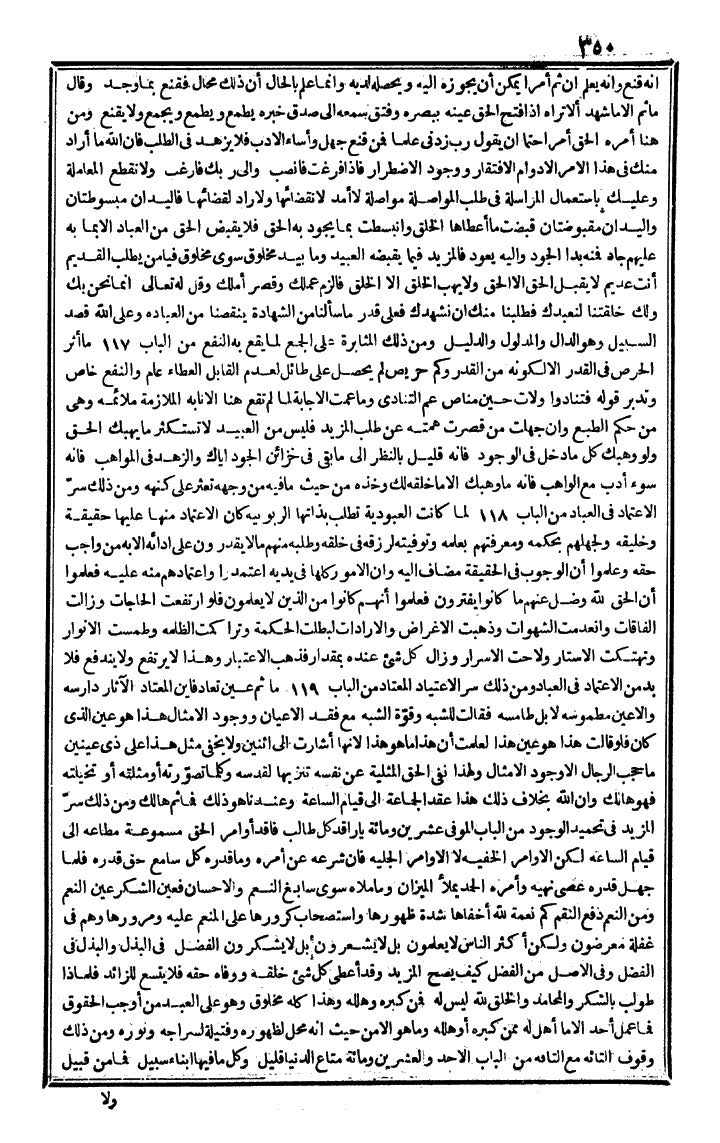 ٣٥٠
انه قنع وانه يعلم ان ثم أمرا يمكن أن يجوزه اليه ويحصله لديه وانما علم بالحال أن ذلك محال فقنع بما وجد وقال
ما ثم الا ما شهد ألا تراه اذا فتح الحق عينه ببصره وفتق سمعه الى صدق خبره يطمع ويطمع ويجمع ولا يقنع ومن
هنا أمره الحق أمرا حتما ان يقول رب زدنى علما فمن قنع جهل وأساء الادب فلا يزهد فى الطلب فان الله ما أراد
منك فى هذا الامر الا دوام الافتقار ووجود الاضطرار فاذا فرغت فانصب والى ربك فارغب ولا تقطع المعاملة
وعليك باستعمال المراسلة فى طلب المواصلة مواصلة لا أمد لانقضائها ولا راد لقضائها فاليدان مبسوطتان
واليدان مقبوضتان قبضت ما أعطاها الخلق وانبسطت بما يجود به الحق فلا يقبض الحق من العباد الا بما به
عليهم جاد فمنه بدا الجود واليه يعود فالمزيد فيما يقبضه العبيد وما بيد مخلوق سوى مخلوق فيا من يطلب القديم
أنت عديم لا يقبل الحق الا الحق ولا يهب الخلق الا الخلق فالزم عملك وقصر أملك وقل له تعالى انما نحن بك
ولك خلقتنا لنعبدك فطلبنا منك ان نشهدك فعلى قدر ما سألنا من الشهادة ينقصنا من العباده وعلى الله قصد
السبيل وهو الدال والمدلول والدليل ومن ذلك المثابرة على الجمع لما يقع به النفع من الباب ١١٧ ما أثر
الحرص فى القدر الا لكونه من القدر وكم حريص لم يحصل على طائل لعدم القابل العطاء عام والنفع خاص
وتدبر قوله فتنادوا ولات حين مناص عم التنادى وما عمت الاجابة لما لم تقع هنا الانابه الملازمة ملائمه وهى
من حكم الطبع وان جهلت من قصرت همته عن طلب المزيد فليس من العبيد لا تستكثر ما يهبك الحق
ولو وهبك كل ما دخل فى الوجود فانه قليل بالنظر الى ما بقى فى خزائن الجود اياك والزهد فى المواهب فانه
سوء أدب مع الواهب فانه ما وهبك الا ما خلقه لك وخذه من حيث ما فيه من وجهه تعثر على كنهه ومن ذلك سرّ
الاعتماد فى العباد من الباب ١١٨ لما كانت العبودية تطلب بذاتها الربوبيه كان الاعتماد منها عليها حقيقة
وخليقه ولجهلهم بحكمه ومعرفتهم بعلمه وتوفيته لرزقه فى خلقه وطلبه منهم ما لا يقدرون على ادائه الا به من واجب
حقه وعلموا أن الوجوب فى الحقيقة مضاف اليه وان الامور كلها فى يديه اعتمدرا واعتمادهم منه عليه فعلموا
أن الحق لله وضل عنهم ما كانوا يفترون فعلموا أنهم كانوا من الذين لا يعلمون فلو ارتفعت الحاجات وزالت
الفاقات وانعدمت الشهوات وذهبت الاغراض والارادات لبطلت الحكمة وتراكمت الظلمه وطمست الانوار
وتهتكت الاستار ولاحت الاسرار وزال كل شئ عنده بمقدار فذهب الاعتبار وهذا لا يرتفع ولا يندفع فلا
بد من الاعتماد فى العباد ومن ذلك سر الاعتياد المعتاد من الباب ١١٩ ما ثم عين تعاد فاين المعتاد الآثار دارسه
والاعين مطموسه لا بل طامسه فقالت للشبه وقوّة الشبه مع فقد الاعيان ووجود الامثال هذا هو عين الذى
كان فلو قالت هذا هو عين هذا لعلمت أن هذا ما هو هذا لانها أشارت الى اثنين ولا يخفى مثل هذا على ذى عينين
ما حجب الرجال الا وجود الامثال ولهذا نفى الحق المثلية عن نفسه تنزيها لقدسه وكلما تصوّرته أو مثلته أو تخيلته
فهو هالك وان الله بخلاف ذلك هذا عقد الجماعة الى قيام الساعة وعندنا هو ذلك فما ثم هالك ومن ذلك سرّ
المزيد فى تحميد الوجود من الباب الموفى عشرين ومائة يا راقد كل طالب فاقد أوامر الحق مسموعة مطاعه الى
قيام الساعه لكن الاوامر الخفيه لا الاوامر الجليه فان شرعه عن أمره وما قدره كل سامع حق قدره فلما
جهل قدره عصى نهيه وأمره الحمد يملأ الميزان وما ملاه سوى سابغ النعم والاحسان فعين الشكر عين النعم
ومن النعم دفع النقم كم نعمة لله أخفاها شدة ظهورها واستصحاب كرورها على المنعم عليه ومرورها وهم فى
غفلة معرضون ولكن أكثر الناس لا يعلمون بل لا يشعرون بل لا يشكرون الفضل فى البذل والبذل فى
الفضل وفى الاصل من الفضل كيف يصح المزيد وقد أعطى كل شئ خلقه ووفاه حقه فلا يتسع للزائد فلماذا
طولب بالشكر والمحامد والخلق لله ليس له فمن كبره وهلله وهذا كله مخلوق وهو على العبد من أوجب الحقوق
فما عمل أحد الا ما أهل له ممن كبره أو هلله وما هو الا من حيث انه محل لظهوره وفتيلة لسراجه ونوره ومن ذلك
وقوف التائه مع التافه من الباب الاحد والعشرين ومائة متاع الدنيا قليل وكل ما فيها ابناء سبيل فما من قبيل
ولا